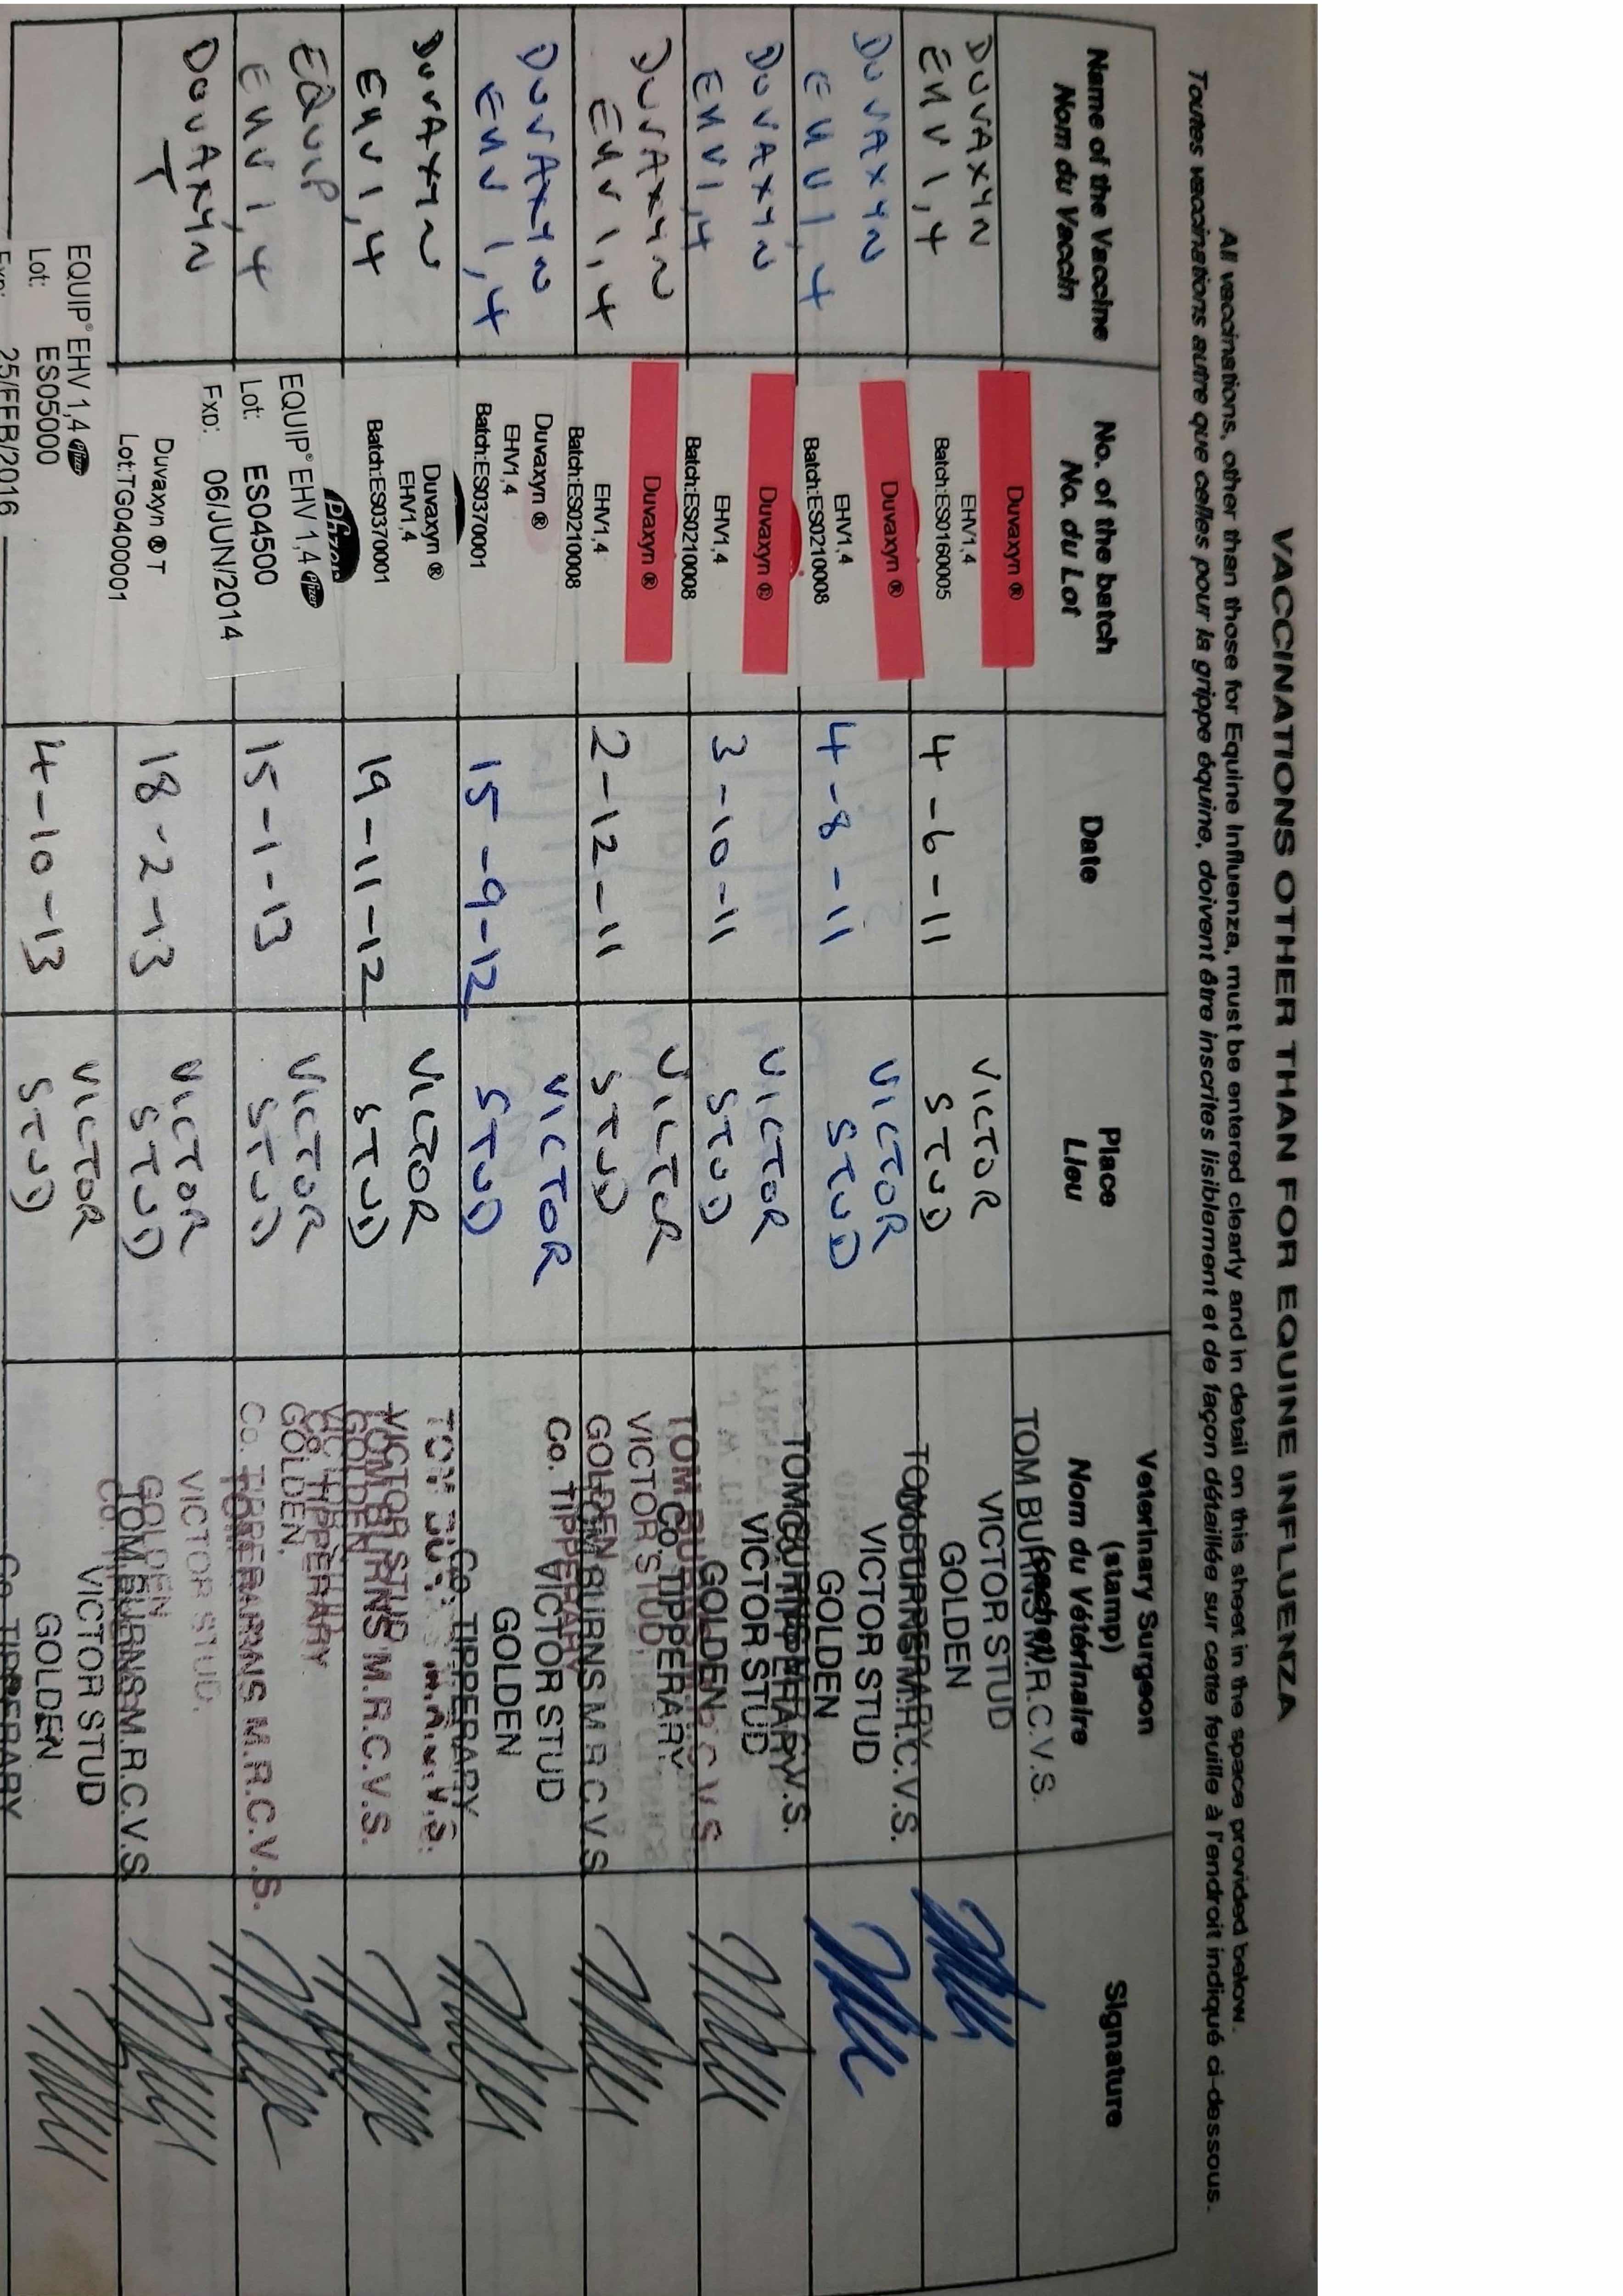 VACCINATIONS OTHER THAN FOR EQUINE INFLUENZA
All vaccinations, other than those for Equine Influenza, must be entered clearly and in detail on this sheet in the space provided below.
Toutes vaccinations autre que celles pour la grippe équine, doivent être inscrites lisiblement et de façon détaillée sur cette feuille à l'endroit indiqué ci-dessous.
Name of the Vaccine
Nom du Vaccin
No. of the batch
No. du Lot
Date
Place
Lieu
Veterinary Surgeon
(stamp)
Nom du Vétérinaire
(cachet)
Signature
DUVAXYN
EHV 1,4
Duvaxyn ®
EHV1,4
Batch:ES0160005
4-6-11
VICTOR
STUD
TOM BURNS M.R.C.V.S.
VICTOR STUD
GOLDEN
Co. TIPPERARY
DUVAXYN
EHV 1,4
Duvaxyn ®
EHV1,4
Batch:ES0210008
4-8-11
VICTOR
STUD
TOM BURNS M.R.C.V.S.
VICTOR STUD
GOLDEN
Co. TIPPERARY
DUVAXYN
EHV 1,4
Duvaxyn ®
EHV1,4
Batch:ES0210008
3-10-11
VICTOR
STUD
TOM BURNS M.R.C.V.S.
VICTOR STUD
GOLDEN
Co. TIPPERARY
DUVAXYN
EHV 1,4
Duvaxyn ®
EHV1,4
Batch:ES0210008
2-12-11
VICTOR
STUD
TOM BURNS M.R.C.V.S.
VICTOR STUD
GOLDEN
Co. TIPPERARY
DUVAXYN
EHV 1,4
Duvaxyn ®
EHV1,4
Batch:ES0370001
15-9-12
VICTOR
STUD
TOM BURNS M.R.C.V.S
VICTOR STUD
GOLDEN
Co. TIPPERARY
DUVAXYN
EHV 1,4
Duvaxyn ®
EHV1,4
Batch:ES0370001
19-11-12
VICTOR
STUD
VICTOR STUD
GOLDEN
Co. TIPPERARY
EQUIP
EHV 1,4
Pfizer
EQUIP® EHV 1,4 Pfizer
Lot: ES04500
Exp: 06/JUN/2014
15-1-13
VICTOR
STUD
TOM BURNS M.R.C.V.S.
GOLDEN,
Co. TIPPERARY
DUVAXYN
T
Duvaxyn ® T
Lot:TG040001
18-2-13
VICTOR
STUD
VICTOR STUD.
GOLDEN
EQUIP® EHV 1,4 Pfizer
Lot: ES05000
Exp: 25/FEB/2016
4-10-13
VICTOR
STUD
TOM BURNS M.R.C.V.S
VICTOR STUD
GOLDEN
Co. TIPPERARY